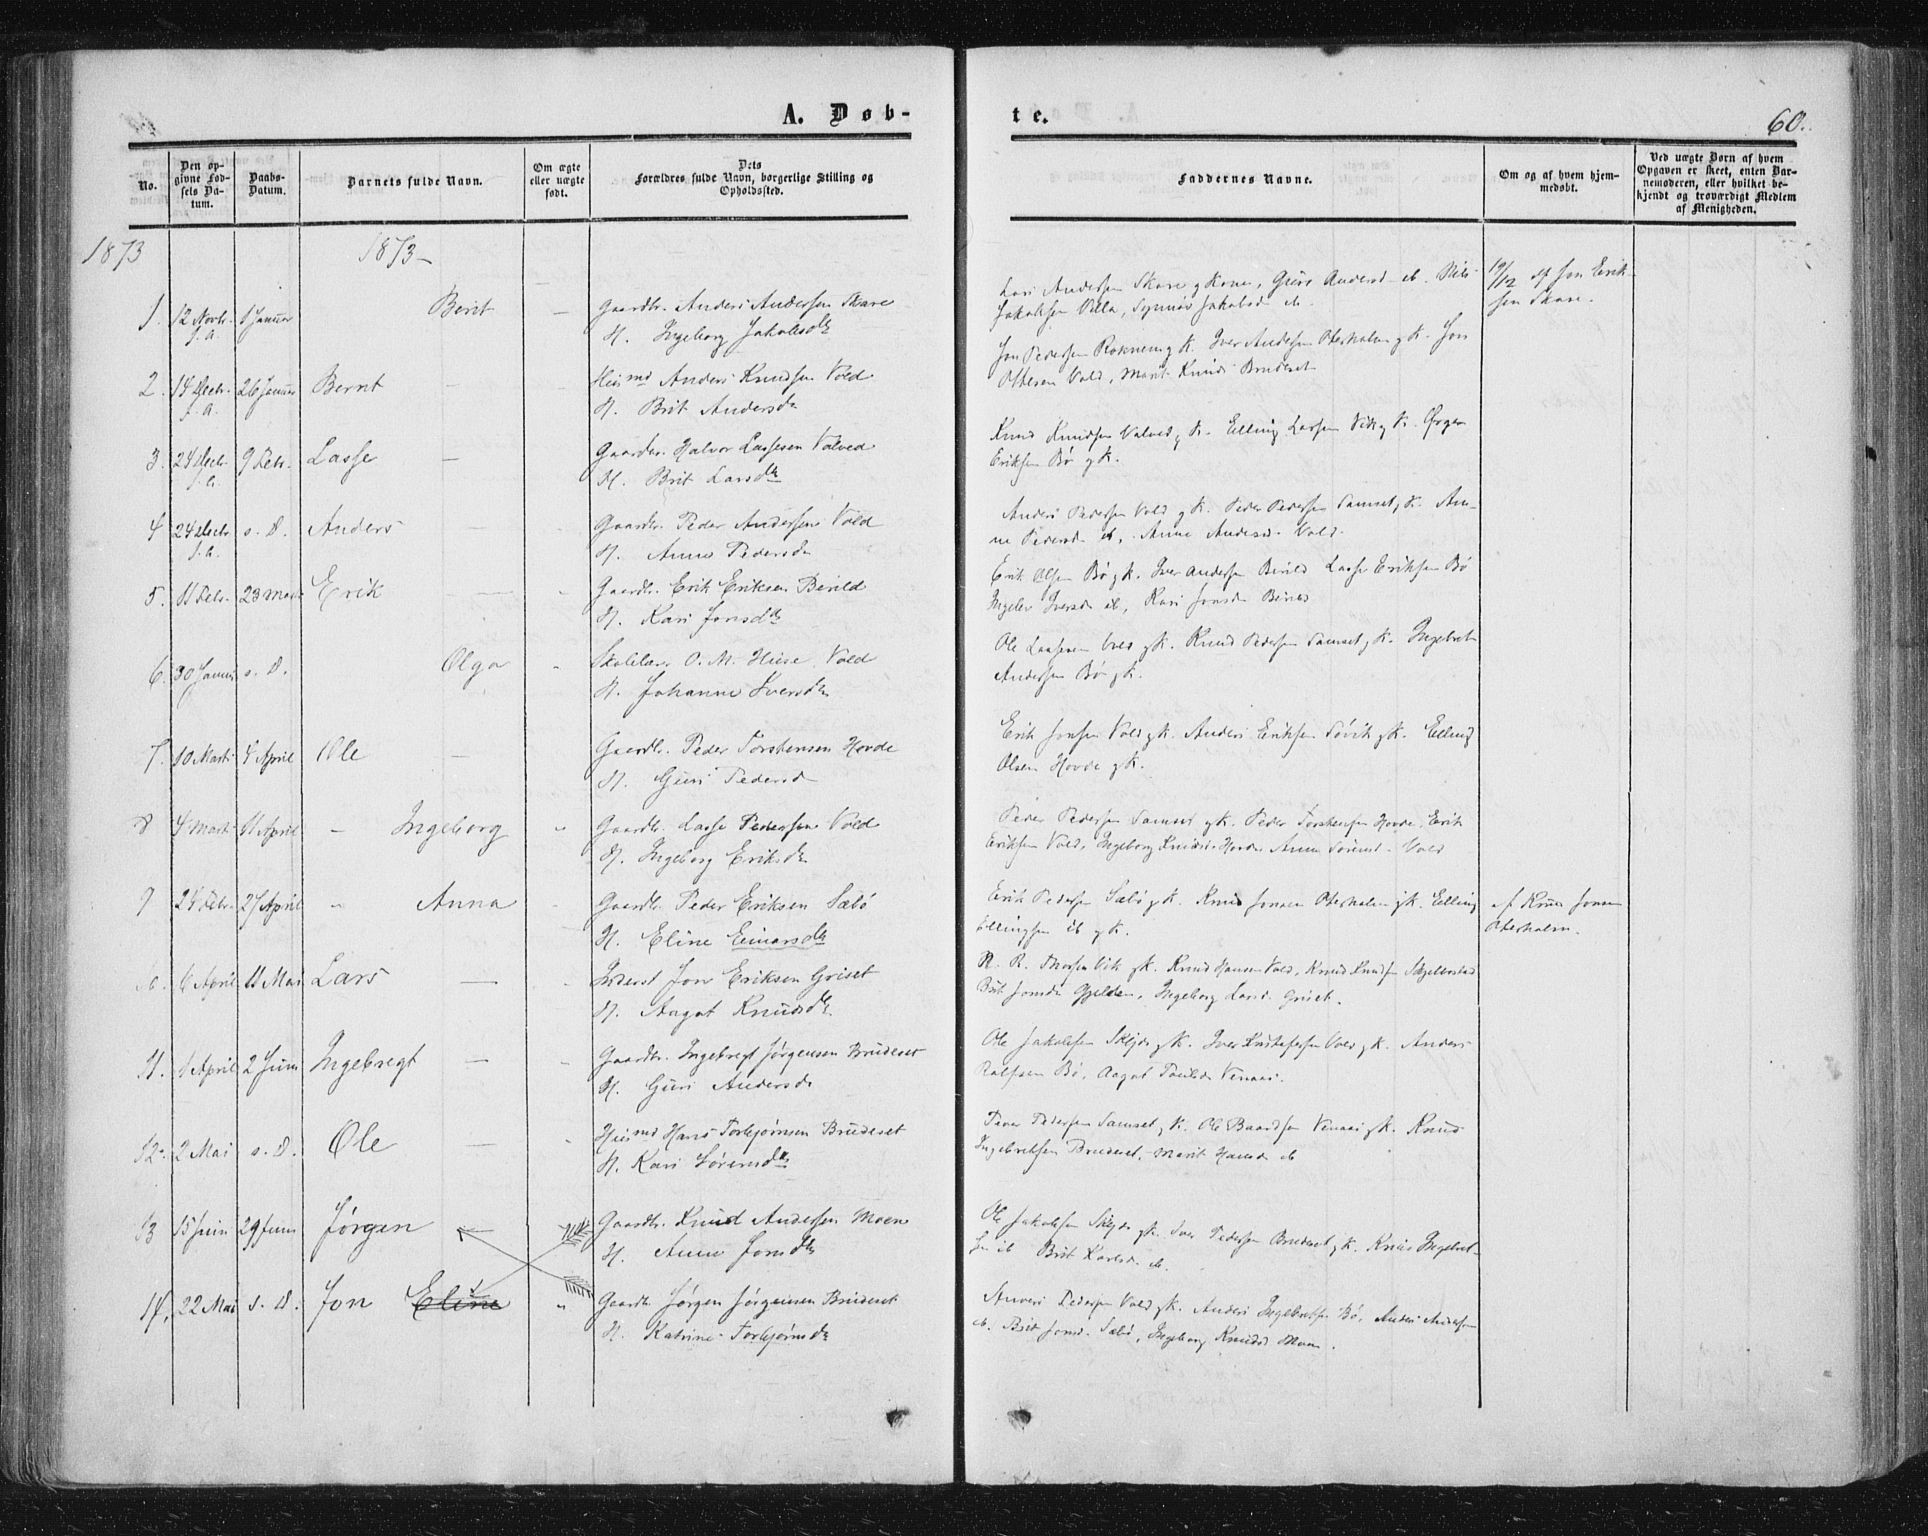 A. Døb-
te.
60.
No.
Den op-
givne Fød-
sels Da-
tum.
Daabs-
Datum.
Barnets fulde Navn.
Om ægte
eller uægte
født.
Dets
Forældres fulde Navn, borgerlige Stilling og
Opholdssted.
Faddernes Navne.
Om og af hvem hjem-
medøbt.
Ved uægte Børn af hvem
Opgaven er skeet, enten Bar-
nemoderen, eller hvilket be-
kjendt og troværdigt Medlem
af Menigheden.
1873
1873
1. 12 Novbr. 1 Januar Berit — Gaardbr. Anders Andersen Skare
f. A. H. Ingeborg Jakobsdr
Andersen Skare og Kone, Guro Andersd ib. Nils
Jakobsen Villa, Synnøv Jakobsd ib.
19/12 af Jon Erik-
sen Skare.
2. 14 Decbr. 26 Januar Bernt — Husmd Anders Knudsen Vold
f. A. H. Brit Andersdr
Jon Pedersen Roknem g K. Iver Andersen Oterholm g K. Jon
Ottesen Vold, Marit Knuds Bruderet
3. 24 Decbr. 9 Febr. Lasse — Gaardbr. Halvor Lassesen Valved
f. A. H. Brit Larsdr
Knud Knudsen Valved g K. Elling Larsen Vik g K.
Eriksen Bø g K.
4 24 Decbr. s. D. Anders — Gaardbr. Peder Andersen Vold
f. A. H. Anne Pedersdr
Anders Pedersen Vold g K. Peder Pedersen Samset g K. An-
ne Pedersd ib, Anne Andersd. Vold.
5. 11 Febr. 23 Marts Erik — Gaardbr. Erik Eriksen Berild
H. Kari Jonsdr
Erik Olsen Bø g K. Iver Andersen Berild Lasse Eriksen Bø
Iversd ib, Kari Jonsd Berild
6. 30 Januar s. D. Olga " Skolelær. O. M. Huse Vold
H. Johanne Iversdr
Ole Lassesen Vold g K. Knud Pedersen Samset g K. Ingebret
Andersen Bø g K.
7. 10 Marts 4 April Ole — Gaardbr. Peder Torstensen Hovde
H. Guri Pedersdr
Erik Jonsen Vold g K. Anders Eriksen Søvik g K. Elling
Olsen Hovde g K.
8 4 Marts 11 April — Ingeborg " Gaardbr. Lasse Pedersen Vold
H. Ingeborg Eriksdr
Peder Pedersen Samset g K. Peder Torstensen Hovde, Erik
Eriksen Vold, Ingeborg Knuds. Hovde Anne Sørensd. Vold
9 24 Febr. 27 April " Anna " Gaardbr. Peder Eriksen Sæbø
H. Eline Einarsdr
Erik Pedersen Sæbø g K. Knud Jonsen Oterholm g K. Elling
Ellingsen ib g K.
af Knud Jonsen
Oterholm.
10. 6 April 11 Mai Lars — " Inderst Jon Eriksen Griset
H. Aagot Knudsdr
R. R. Thorsen Vik g K. Knud Hansen Vold, Knud Knudsen Skjelbostad
Brit Jonsdr Gjelden, Ingeborg Larsd. Griset.
11. 1 April 2 Juni Ingebregt — Gaardbr. Ingebregt Jørgensen Bruderet
H. Guri Andersdr
Ole Jakobsen Skejde g K. Iver Kristofersen Vold g K. Anders
Rolfsen Bø, Aagot Paulsdr Venaas.
12. 2 Mai s. D. Ole — " Husmd Hans Torbjørnsen Bruderet
H. Kari Sørensdr
Peder Pedersen Samset g K. Ole Baardsen Venaas g K. Knud
Ingebretsen Bruderet, Marit Hansd ib
13 15 Juni 29 Juni Jørgen — Gaardbr. Knud Andersen Moen
H. Anne Jonsdr
Ole Jakobsen Skejde g K. Iver Pedersen Bruderet g K. Knud Ingebret-
sen ib Brit Karlsd ib.
14. 22 Mai s. D. Jon Eline " Gaardbr. Jørgen Jørgensen Bruderet
H. Katrine Torbjørnsdr
Anders Pedersen Vold g K. Anders Ingebretsen Bø, Anders Andersen
ib. Brit Jonsd. Sæbø, Ingeborg Knudsd Moen.